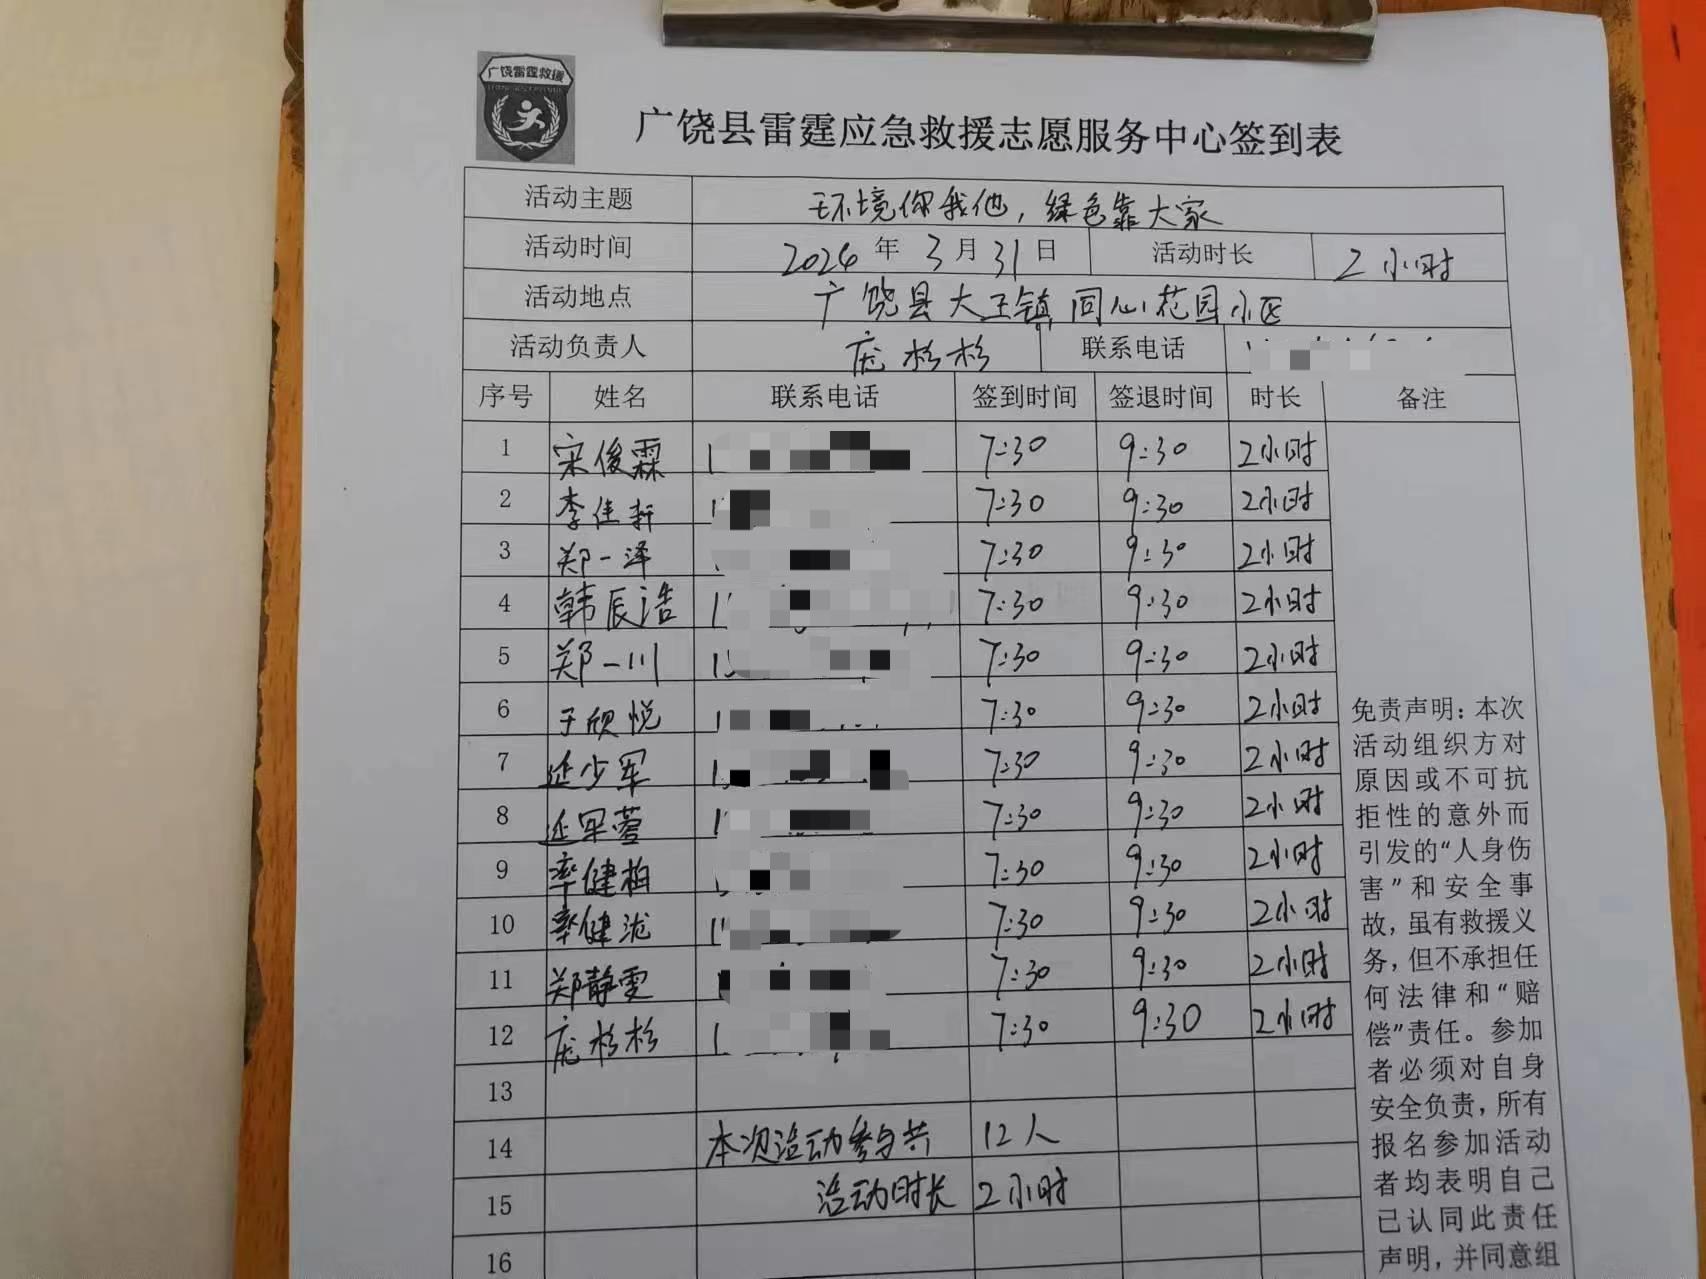 广饶雷霆救援
广饶县雷霆应急救援志愿服务中心签到表
活动主题 环境你我他，绿色靠大家
活动时间 2024年3月31日 活动时长 2小时
活动地点 广饶县大王镇同心花园小区
活动负责人 庞杉杉 联系电话
序号 姓名 联系电话 签到时间 签退时间 时长 备注
1 宋俊霖 7:30 9:30 2小时
2 李佳轩 7:30 9:30 2小时
3 郑一泽 7:30 9:30 2小时
4 韩辰浩 7:30 9:30 2小时
5 郑一川 7:30 9:30 2小时
6 于欣悦 7:30 9:30 2小时
7 延少军 7:30 9:30 2小时
8 延军萱 7:30 9:30 2小时
9 率健柏 7:30 9:30 2小时
10 率健泷 7:30 9:30 2小时
11 郑静雯 7:30 9:30 2小时
12 庞杉杉 7:30 9:30 2小时
13
14 本次活动参与共 12人
15 活动时长 2小时
16
免责声明：本次
活动组织方对
原因或不可抗
拒性的意外而
引发的“人身伤
害”和安全事
故，虽有救援义
务，但不承担任
何法律和“赔
偿”责任。参加
者必须对自身
安全负责，所有
报名参加活动
者均表明自己
已认同此责任
声明，并同意组